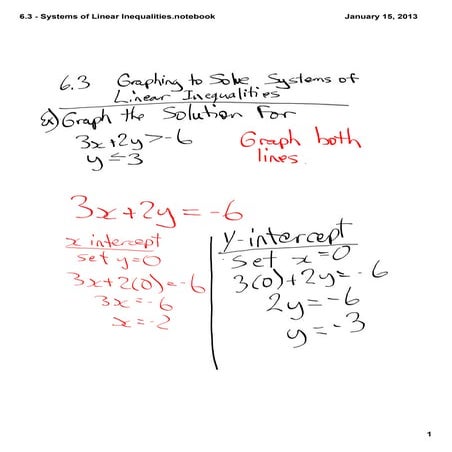 6.3 - Systems of Linear Inequalities.notebook
January 15, 2013
6.3 Graphing to Solve Systems of
Linear Inequalities
Ex) Graph the Solution For
3x+2y>-6
y≤3
Graph both
lines.
3x+2y=-6
x intercept
set y=0
3x+2(0)=-6
3x=-6
x=-2
y-intercept
set x=0
3(0)+2y=-6
2y=-6
y=-3
1